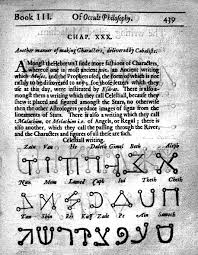 Book III. Of Occult Philosophy. 439
CHAP. XXX.
Another manner of making Characters, delivered by Cabalists.
Amongst the Hebrews I finde more fashions of Characters,
whereof one is most ancient, viz. an Ancient writing
which Moses, and the Prophets used, the form of which is not
rashly to be discovered to any: for those letters which they use
at this day, were instituted by Esdras. There is amongst
them a writing which they call Celestiall, because they
shew it placed and figured amongst the Stars, no otherwise
then the other Astrologers produce images of signs from the
lineaments of Stars. There is also a writing which they call
Malachim, or Melachim i.e. of Angels, or Regal; there is
also another, which they call the passing through the River,
and the Characters and figures of all these are such.
Celestiall writing.
Zain Vau He Daleth Gimel Beth Aleph
Nun Mem Lamed Caph Iod Theth Cheth
Tau Shin Res Kuff Zade Pe Ain Samech